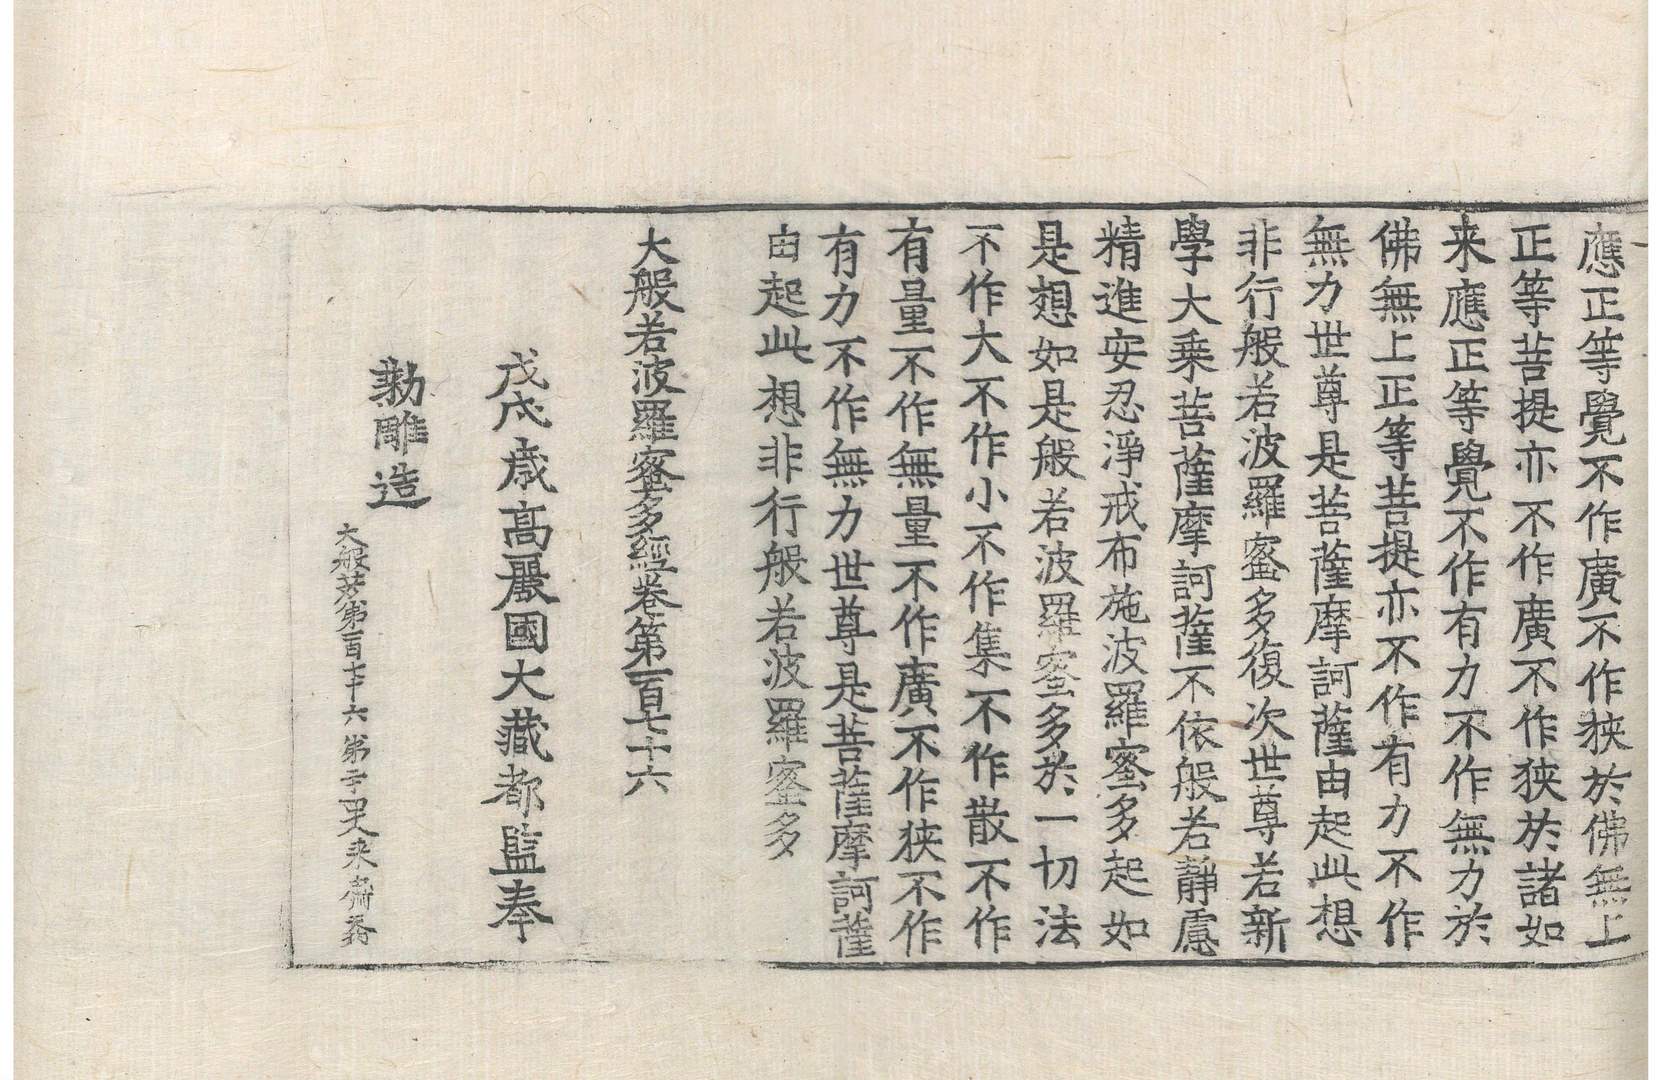 應正等覺不作廣不作狹於佛無上
正等菩提亦不作廣不作狹於諸如
来應正等覺不作有力不作無力於
佛無上正等菩提亦不作有力不作
無力世尊是菩薩摩訶薩由起此想
非行般若波羅蜜多復次世尊若新
學大乗菩薩摩訶薩不依般若靜慮
精進安忍淨戒布施波羅蜜多起如
是想如是般若波羅蜜多於一切法
不作大不作小不作集不作散不作
有量不作無量不作廣不作狹不作
有力不作無力世尊是菩薩摩訶薩
由起此想非行般若波羅蜜多
大般若波羅蜜多經卷第一百七十六
戊戌歳高麗國大藏都監奉
勅雕造
大般若第一百七十六第二十